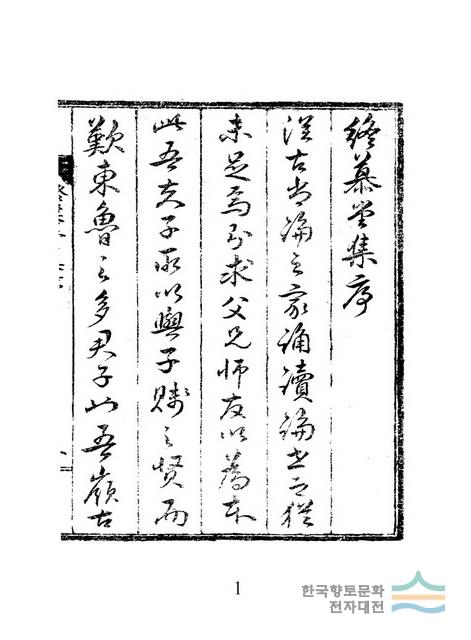 終慕堂集序
從古尚論之家誦讀論世之猶
未足焉 求父兄師友以為本
此吾夫子所以興子賤之賢而
歎東魯之多君子 吾嶺古
1
한국향토문화
전자대전